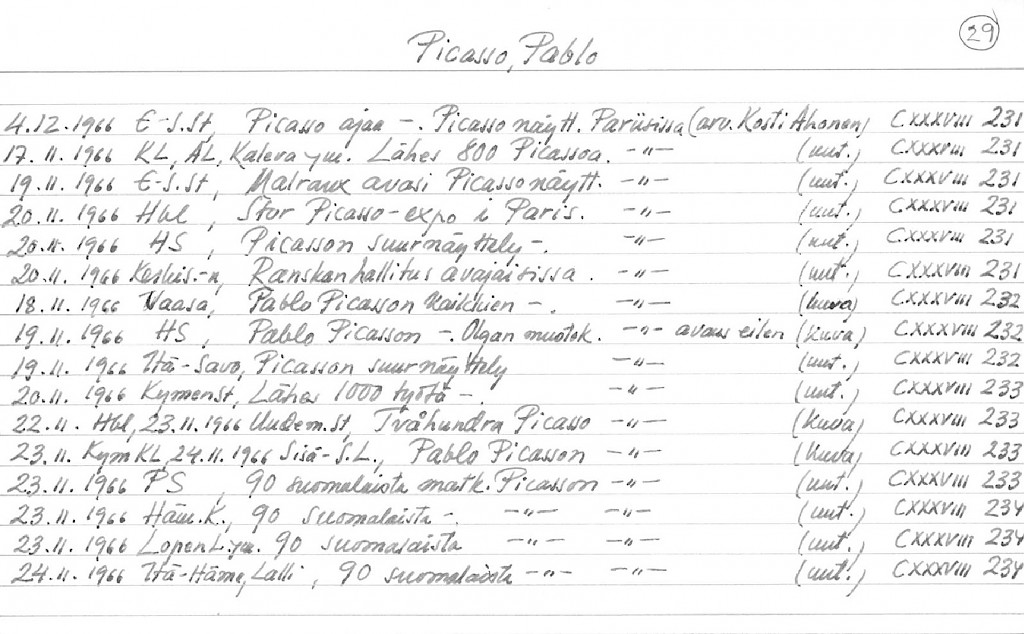 29
Picasso, Pablo
4.12.1966 E-S.St, Picasso ajaa -. Picasso näytt. Pariisissa (arv. Kosti Ahonen) CXXXVIII 231
17.11.1966 KL, AL, Kaleva ym. Lähes 800 Picassoa. -"- (uut.) CXXXVIII 231
19.11.1966 E-S.St, Malraux avasi Picassonäytt. -"- (uut.) CXXXVIII 231
20.11.1966 Hbl, Stor Picasso-expo i Paris. -"- (uut.) CXXXVIII 231
20.11.1966 HS, Picasson suurnäyttely -. -"- (uut.) CXXXVIII 231
20.11.1966 Keskis.-n, Ranskan hallitus avajaisissa. -"- (uut.) CXXXVIII 231
18.11.1966 Vaasa, Pablo Picasson kaikkien -. -"- (kuva) CXXXVIII 232
19.11.1966 HS, Pablo Picasson -. Olgan muotok. -"- avaus eilen (kuva) CXXXVIII 232
19.11.1966 Itä-Savo, Picasson suurnäyttely -"- (uut.) CXXXVIII 232
20.11.1966 Kymenst, Lähes 1000 työtä -. -"- (uut.) CXXXVIII 233
22.11. Hbl, 23.11.1966 Uudem.st, Tvåhundra Picasso -"- (kuva) CXXXVIII 233
23.11. KymKL, 24.11.1966 Sisä-S.L., Pablo Picasson -"- (kuva) CXXXVIII 233
23.11.1966 PS, 90 suomalaista matk. Picasson -"- (uut.) CXXXVIII 233
23.11.1966 Häm.K., 90 suomalaista -. -"- -"- (uut.) CXXXVIII 234
23.11.1966 Lopen L. ym. 90 suomalaista -"- -"- (uut.) CXXXVIII 234
24.11.1966 Itä-Häme, Lalli, 90 suomalaista -"- -"- (uut.) CXXXVIII 234